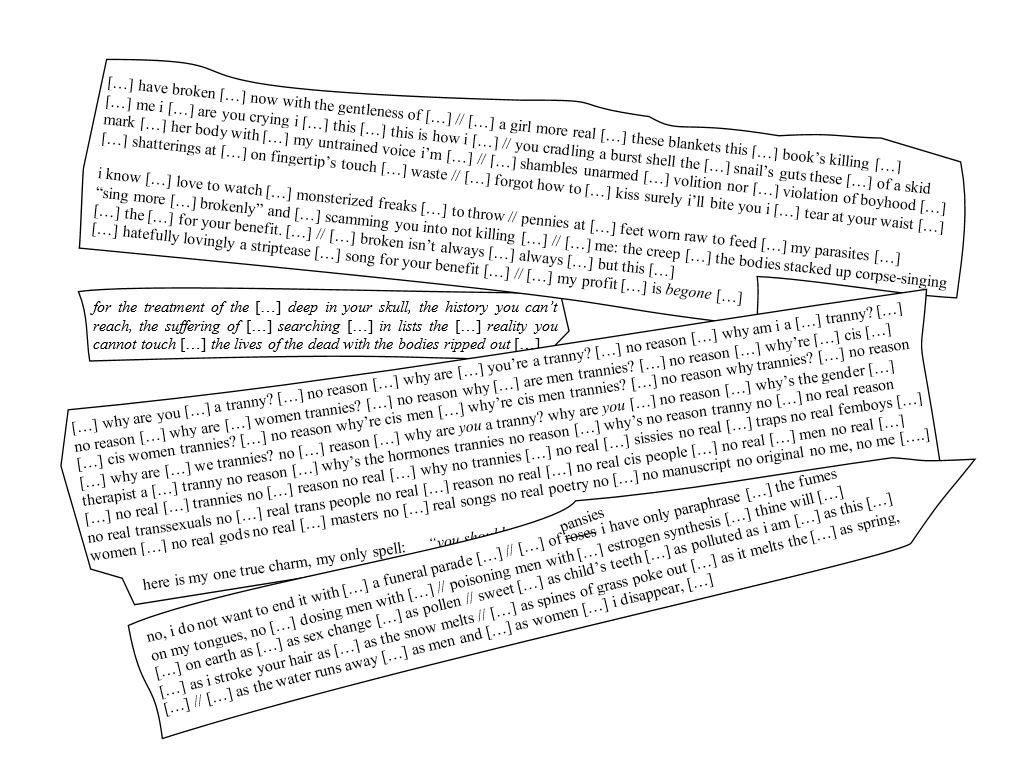 […] have broken […] now with the gentleness of […] // […] a girl more real […] these blankets this […] book’s killing […]
[…] me i […] are you crying i […] this […] this is how i […] // you cradling a burst shell the […] snail’s guts these […] of a skid
mark […] her body with […] my untrained voice i’m […] // […] shambles unarmed […] volition nor […] violation of boyhood […]
[…] shatterings at […] on fingertip’s touch […] waste // […] forgot how to […] kiss surely i’ll bite you i […] tear at your waist […]
i know […] love to watch […] monsterized freaks […] to throw // pennies at […] feet worn raw to feed […] my parasites […]
“sing more […] brokenly” and […] scamming you into not killing […] // […] me: the creep […] the bodies stacked up corpse-singing
[…] the […] for your benefit. […] // […] broken isn’t always […] always […] but this […]
[…] hatefully lovingly a striptease […] song for your benefit […] // […] my profit […] is begone […]
for the treatment of the […] deep in your skull, the history you can’t
reach, the suffering of […] searching […] in lists the […] reality you
cannot touch […] the lives of the dead with the bodies ripped out […]
[…] why are you […] a tranny? […] no reason […] why are […] you’re a tranny? […] no reason […] why am i a […] tranny? […]
no reason […] why are […] women trannies? […] no reason why […] are men trannies? […] no reason […] why’re […] cis […]
[…] cis women trannies? […] no reason why’re cis men […] why’re cis men trannies? […] no reason why trannies? […] no reason
[…] why are […] we trannies? no […] reason […] why are you a tranny? why are you […] no reason […] why’s the gender […]
therapist a […] tranny no reason […] why’s the hormones trannies no reason […] why’s no reason tranny no […] no real reason
[…] no real […] trannies no […] reason no real […] why no trannies […] no real […] sissies no real […] traps no real femboys […]
no real transsexuals no […] real trans people no real […] reason no real […] no real cis people […] no real […] men no real […]
women […] no real gods no real […] masters no […] real songs no real poetry no […] no manuscript no original no me, no me [….]
here is my one true charm, my only spell: “you
pansies
no, i do not want to end it with […] a funeral parade […] // […] of roses i have only paraphrase […] the fumes
on my tongues, no […] dosing men with […] // poisoning men with […] estrogen synthesis […] thine will […]
[…] on earth as […] as sex change […] as pollen // sweet […] as child’s teeth […] as polluted as i am […] as this […]
[…] as i stroke your hair as […] as the snow melts // […] as spines of grass poke out […] as it melts the […] as spring,
[…] // […] as the water runs away […] as men and […] as women […] i disappear, […]